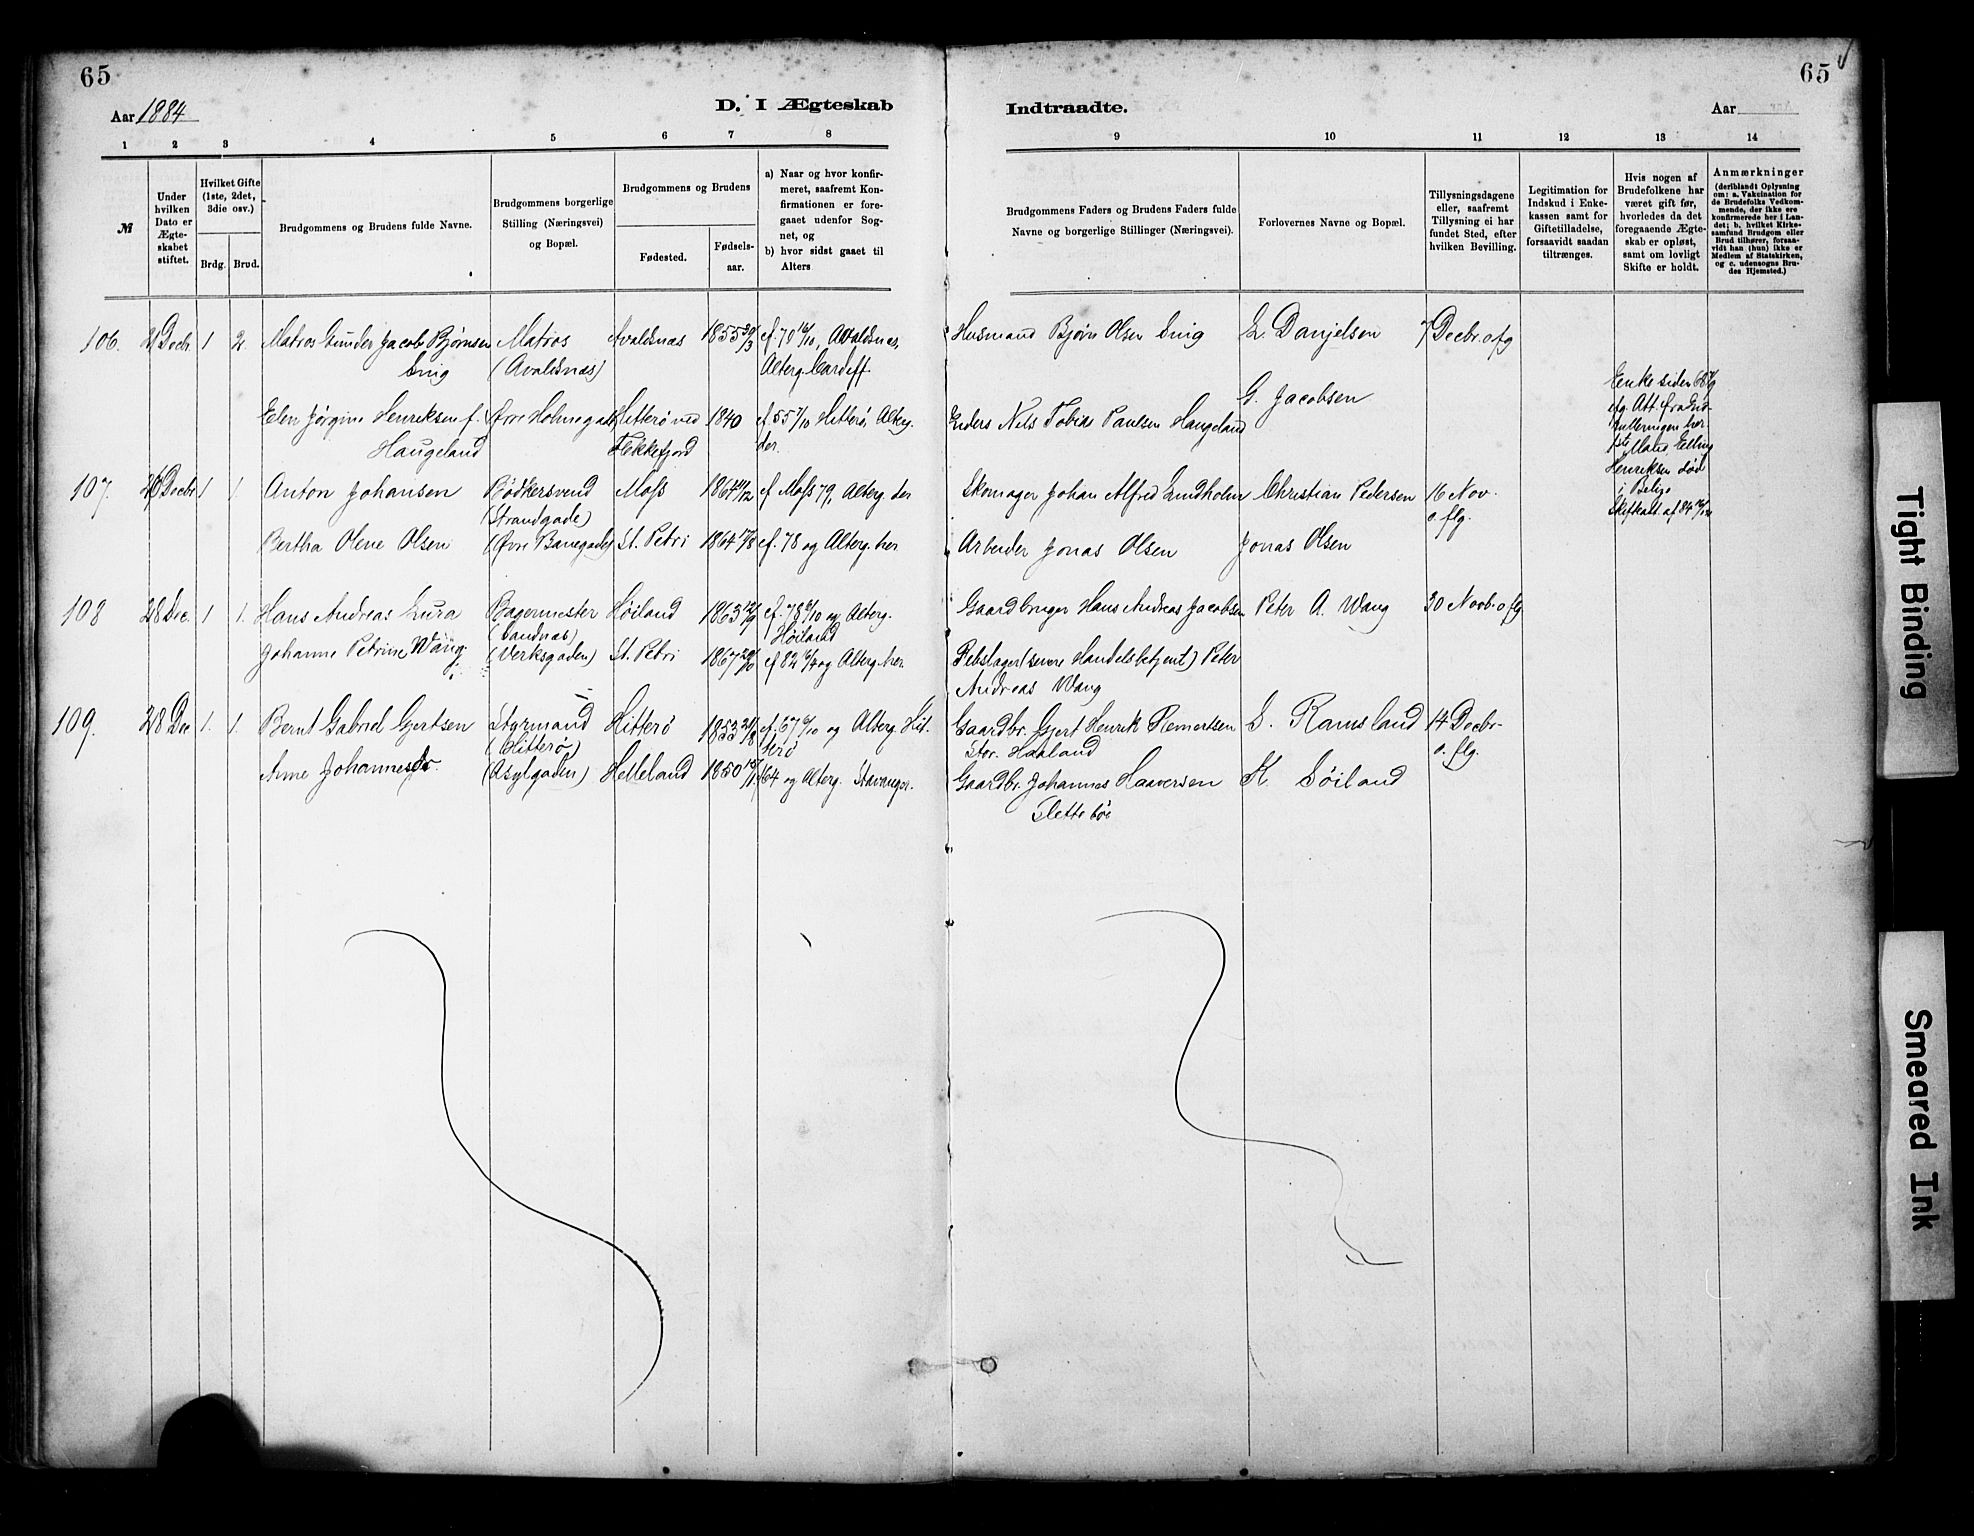 65
65
Aar 1884
D. I Ægteskab
Indtraadte.
Aar
1 2 3 4 5 6 7 8
9 10 11 12 13 14
№
Under hvilken Dato er Ægte-skabet stiftet.
Hvilket Gifte (1ste, 2det, 3die osv.)
Brdg. Brud.
Brudgommens og Brudens fulde Navne.
Brudgommens borgerlige Stilling (Næringsvei) og Bopæl.
Brudgommens og Brudens
Fødested.
Fødsels-aar.
a) Naar og hvor konfir-meret, saafremt Kon-firmationen er fore-gaaet udenfor Sog-net, og
b) hvor sidst gaaet til Alters
Brudgommens Faders og Brudens Faders fulde Navne og borgerlige Stillinger (Næringsvei).
Forlovernes Navne og Bopæl.
Tillysningsdagene eller, saafremt Tillysning ei har fundet Sted, efter hvilken Bevilling.
Legitimation for Indskud i Enke-kassen samt for Giftetilladelse, forsaavidt saadan tiltrænges.
Hvis nogen af Brudefolkene har været gift før, hvorledes da det foregaaende Ægte-skab er opløst, samt om lovligt Skifte er holdt.
Anmærkninger
(deriblandt Oplysning om: a. Vakcination for de Brudefolks Vedkom-mende, der ikke ere konfirmerede her i Lan-det; b. hvilket Kirke-samfund Brudgom eller Brud tilhører, forsaa-vidt han (hun) ikke er Medlem af Statskirken, og c. udensogns Bru-des Hjemsted.)
106. 21 Decbr. 1 2. Matros Gunder Jacob Bjørnsen Matros Avaldsnæs 1855 29/3 cf. 70 16/10, Avaldsnæs, Husmand Bjørn Olsen Snig L. Danjelsen 7 Decbr. o fg
Snig (Avaldsnæs) Alterg. Cardiff.
Elen Jørgine Henriksen f. Øvre Holmegade Hitterø ved 1840 cf 55 7/10 Hitterø, Alterg. Enders Nils Tobias Paulsen Haugeland G. Jacobsen
Haugeland Flekkefjord der.
Enke siden
Henriksen død
i Belize
107. 26 Decbr 1 1. Anton Johansen Bødkersvend Moss 1864 11/12 cf Moss 79, Alterg. der Skomager Johan Alfred Lundholm Christian Pedersen 16 Nov.
(Strandgade) o. flg.
Bertha Olene Olsen (Øvre Banegade) St. Petri 1864 17/8 cf. 78 og Alterg. her Arbeider Jonas Olsen Jonas Olsen
108 28 Dec. 1 1. Hans Andreas Lura Bagermester Høiland 1863 12/9 cf. 78 6/10 og Alterg. Gaardbruger Hans Andreas Jacobsen Peter A. Wang 30 Novb. o flg
(Sandnæs) Høiland
Johanne Petrine Wang (Verksgaden) St. Petri 1867 29/10 cf 82 16/4 og Alterg. her Rebslager (senere Handelsbetjent) Peter
Andreas Wang
109. 28 Dec 1. 1. Bernt Gabriel Gjertsen Styrmand Hitterø 1853 21/8 cf. 67 6/10 og Alterg. Hit- Gaardbr. Gjert Henrik Reinertsen S. Ramsland 14 Decbr.
(Hitterø) terø Stor. Haaland o. flg.
Anne Johannesdr. (Asylgaden) Helleland 1850 15/11 64 og Alterg. Stavanger. Gaardbr. Johannes Haaversen K. Søiland
Slettebøe
Tight Binding
Smeared Ink